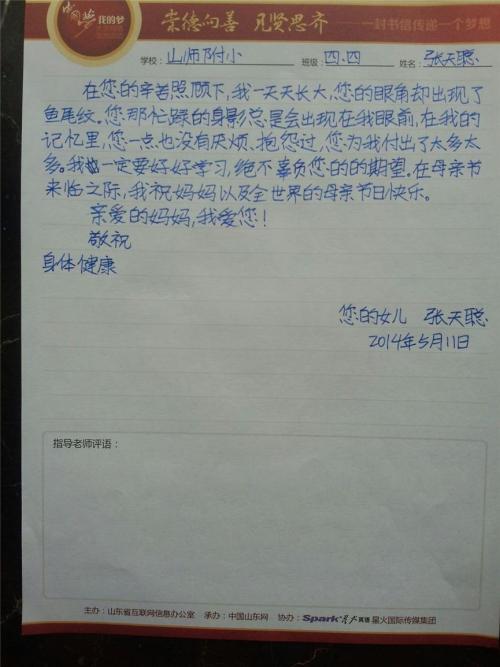 中国梦 我的梦
崇德向善 见贤思齐
一封书信传递一个梦想
学校：山师附小 班级：四.四 姓名：张天聪
在您的辛苦照顾下，我一天天长大，您的眼角却出现了
鱼尾纹。您那忙碌的身影总是会出现在我眼前，在我的
记忆里，您一点也没有厌烦、抱怨过，您为我付出了太多太
多。我一定要好好学习，绝不辜负您的的期望。在母亲节
来临之际，我祝妈妈以及全世界的母亲节日快乐。
亲爱的妈妈，我爱您！
敬祝
身体健康
您的女儿 张天聪
2014年5月11日
指导老师评语：
主办：山东省互联网信息办公室 承办：中国山东网 协办：Spark星火英语 星火国际传媒集团